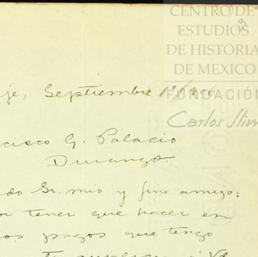 CENTRO DE
ESTUDIOS
DE HISTORIA
DE MEXICO
FUNDACIÓN
Carlos Slim
je, Septiembre 18/
cisco G. Palacio
Durango
do Sr. mio y fino amigo:
tener que hacer en
os pagos que tengo